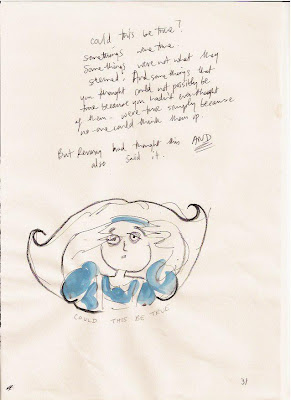 could this be true?
Some things are true
Some things were not what they
seemed. And some things that
you thought could not possibly be
true because you hadn't even thought
of them - were true simply because
no-one could think them up.
But had thought this AND
also said it.
COULD THIS BE TRUE